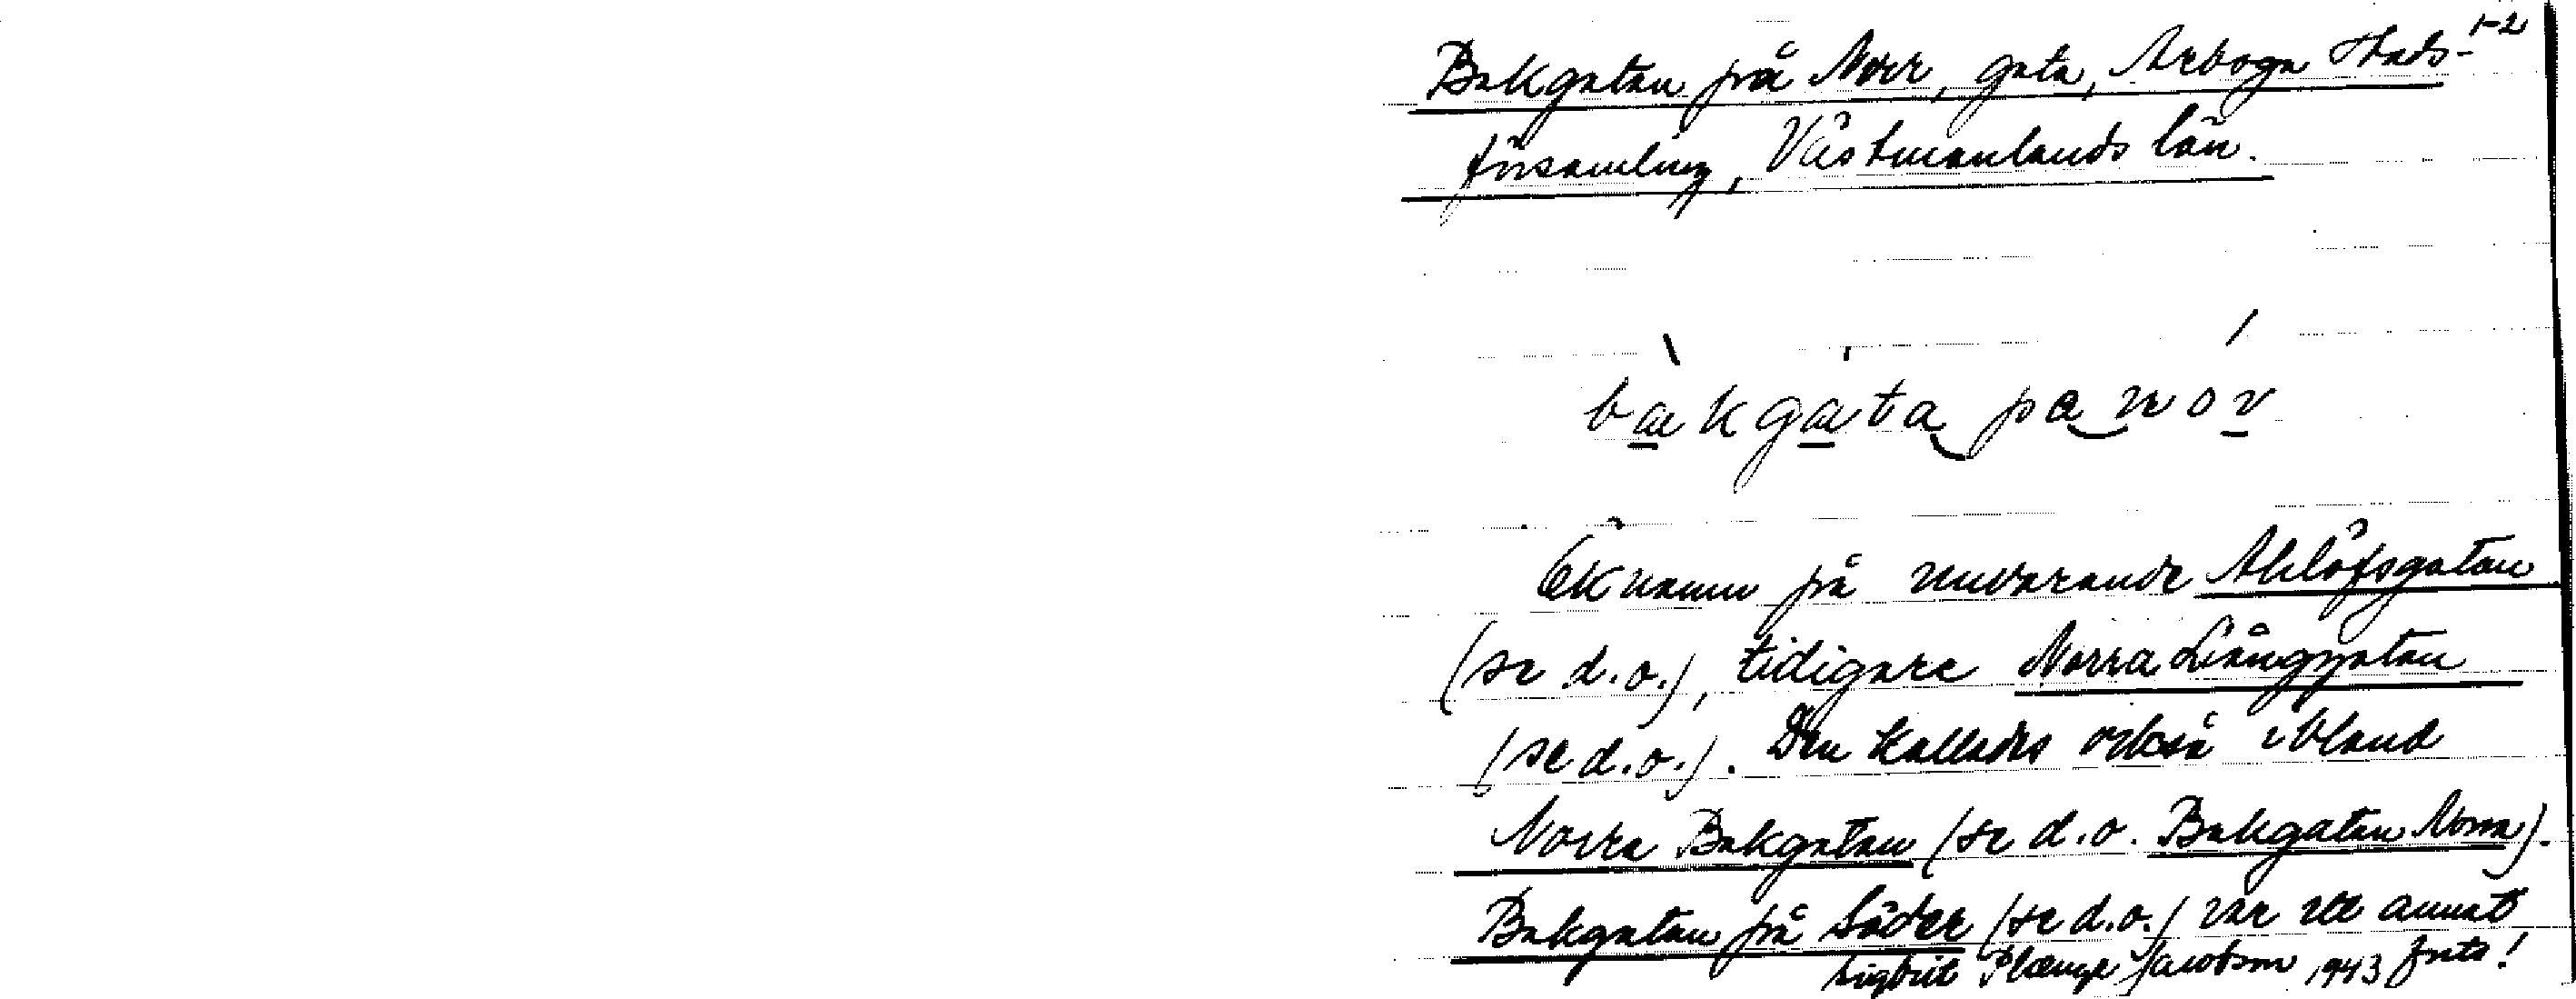 1-2
Bakgatan på Norr, gata, Arboga Stads-
församling, Västmanlands län.
bakgata pa nor
Öknamn på nuvarande Ahllöfsgatan
(se d.o.), tidigare Norra Långgatan
(se d.o.). Den kallades också ibland
Norra Bakgatan (se d.o. Bakgatan Norra).
Bakgatan på Söder (se d.o.) var ett annat
Sigbrit Plænge Jacobson 1943 forts!